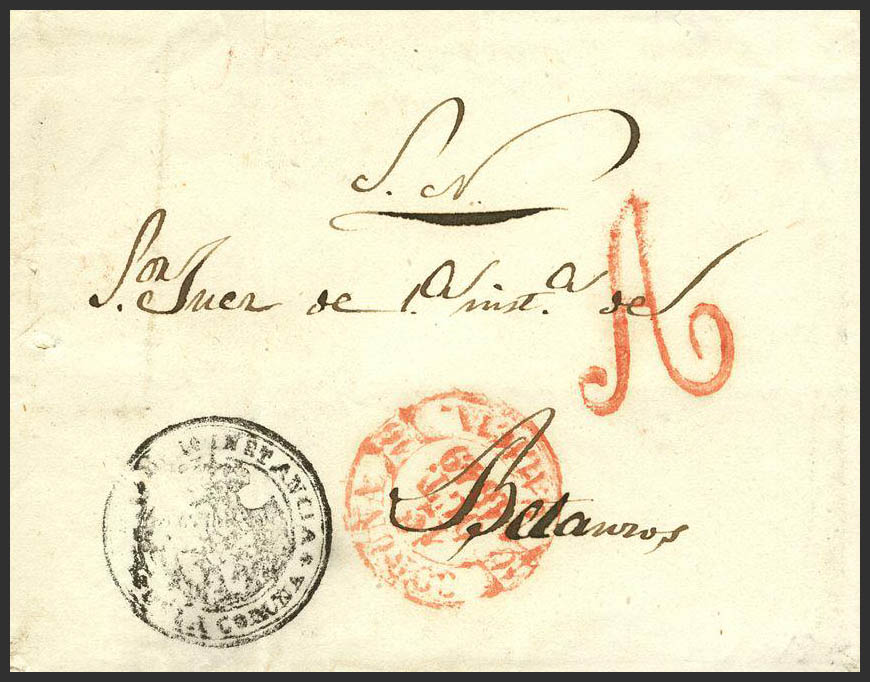 S. N.
S.ᵒʳ Juez de 1.ª inst.ª de
A
Betanzos
1ª INSTANCIA
LA CORUÑA
CORUÑA